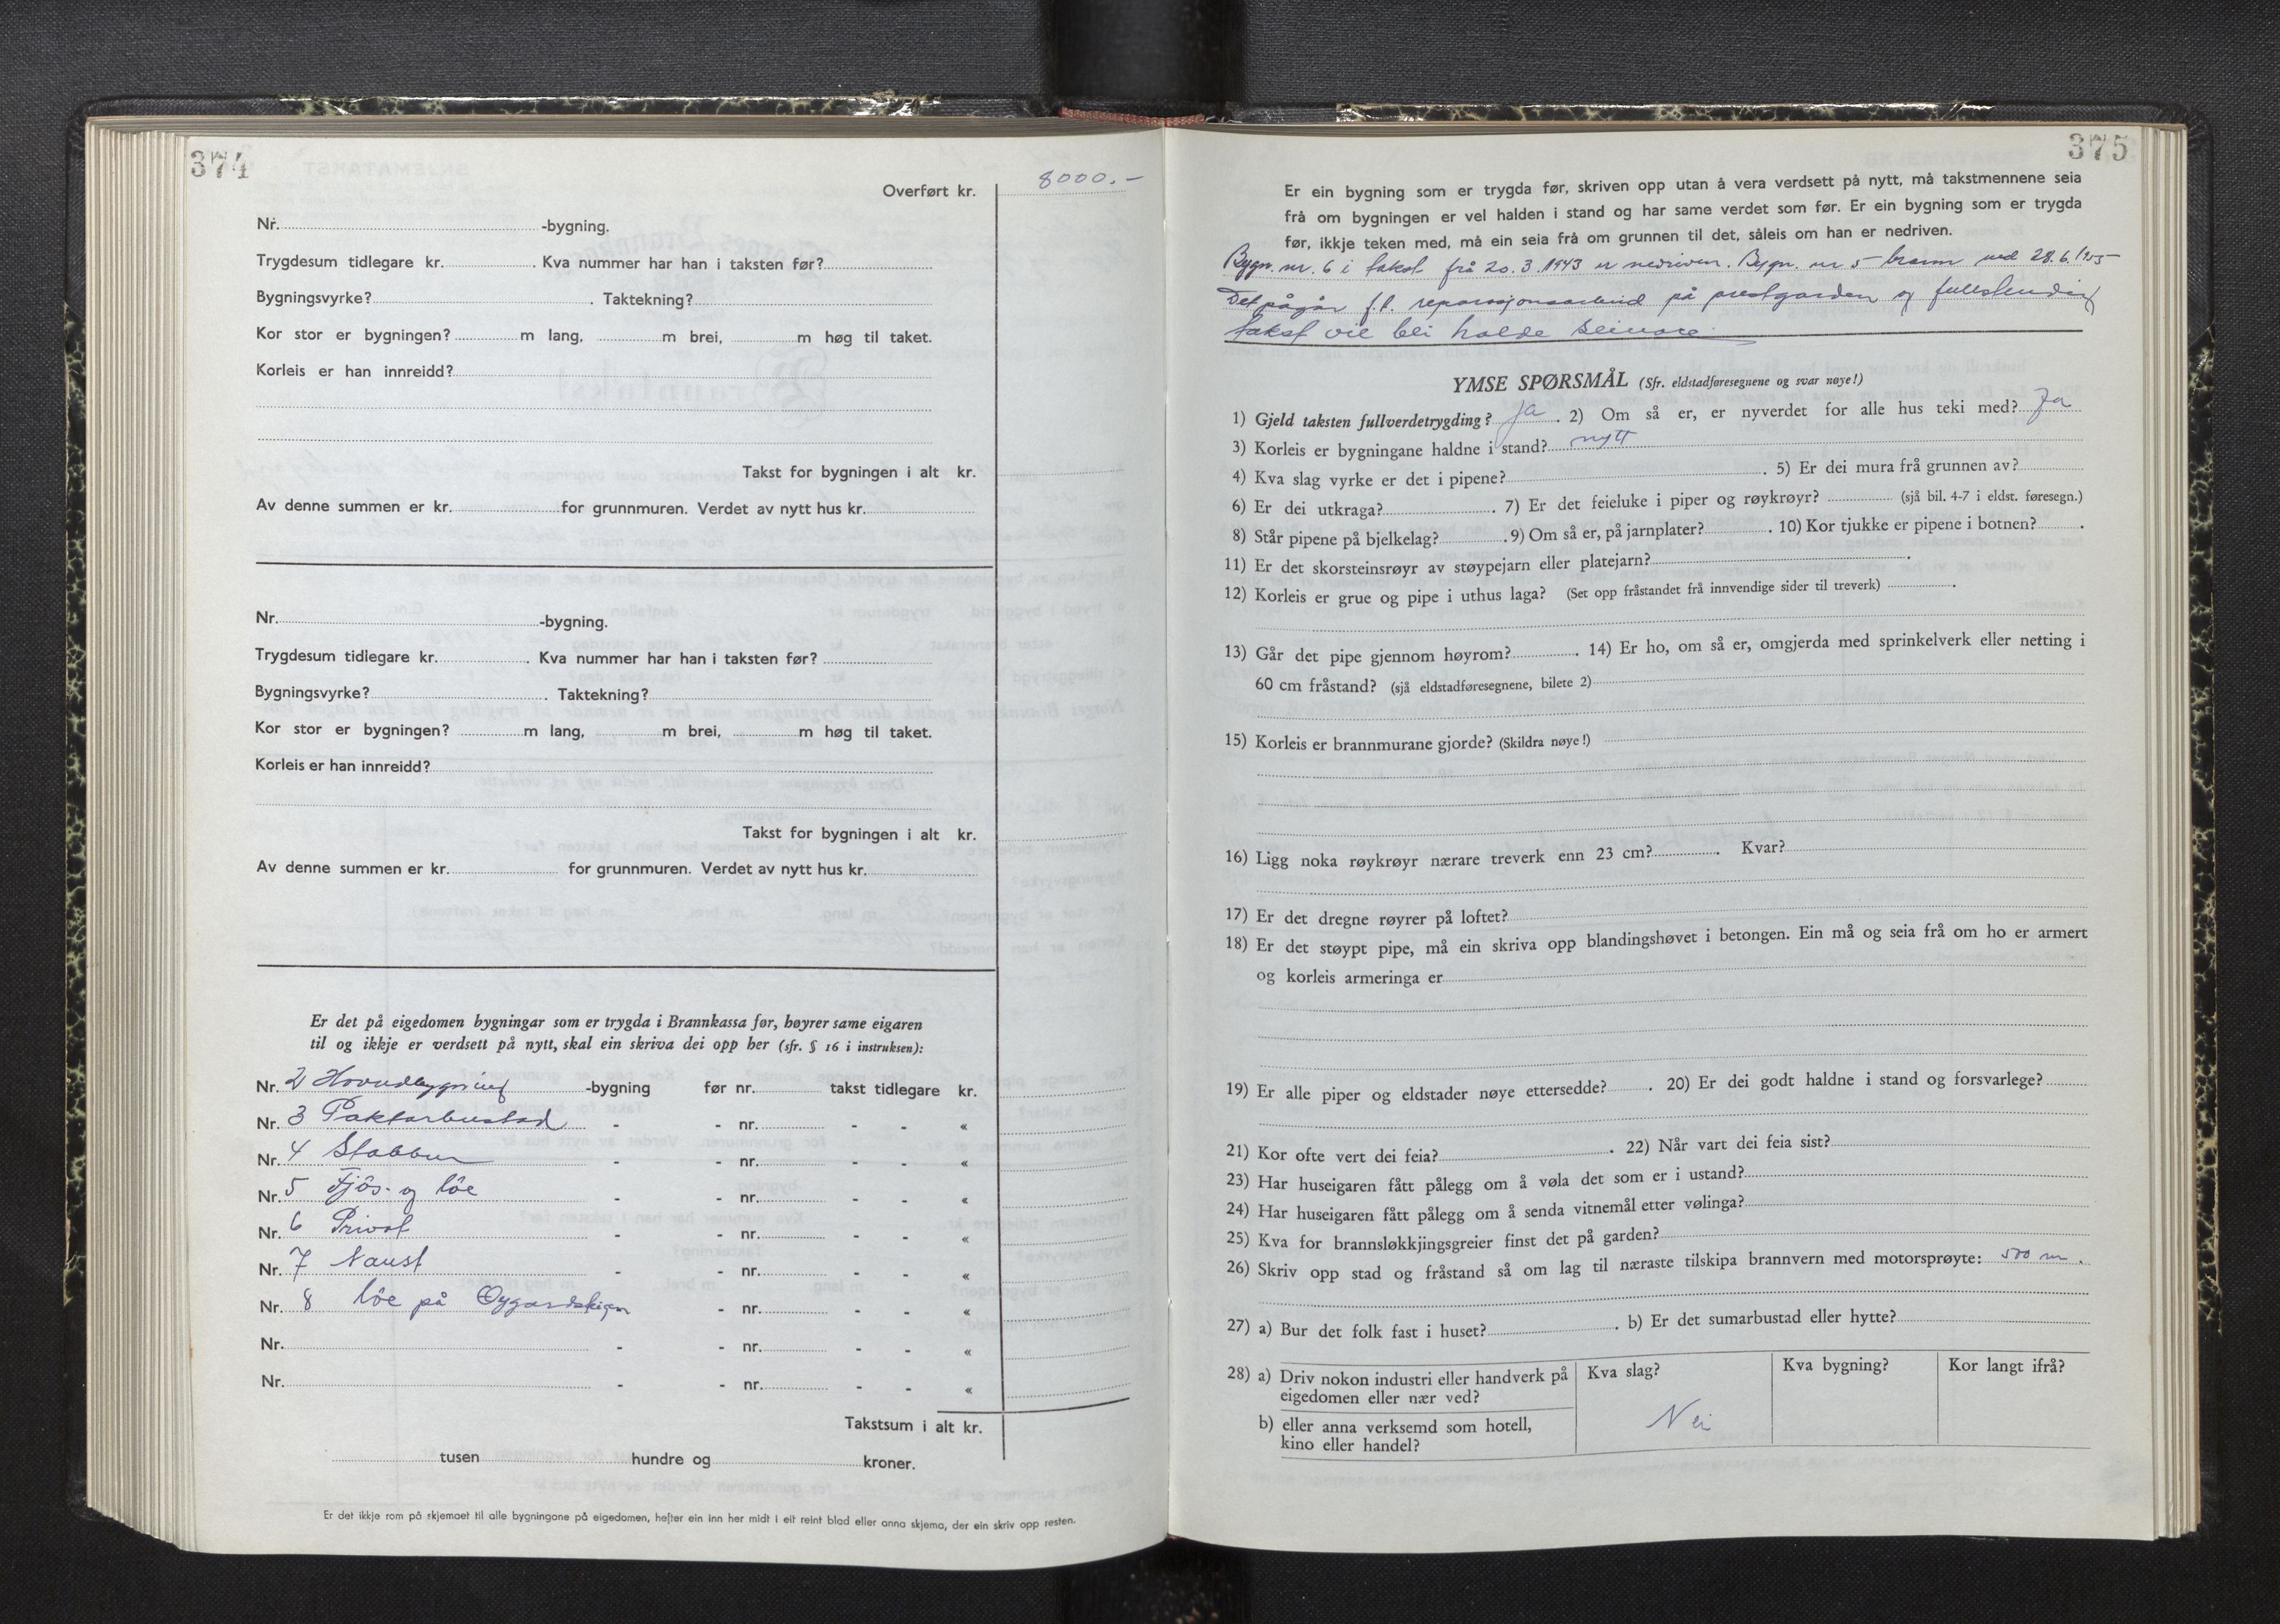 374
Overført kr. 8000.-
Nr. -bygning.
Trygdesum tidlegare kr. . Kva nummer har han i taksten før?
Bygningsvyrke? . Taktekning?
Kor stor er bygningen? m lang, m brei, m høg til taket.
Korleis er han innreidd?
Takst for bygningen i alt kr.
Av denne summen er kr. for grunnmuren. Verdet av nytt hus kr.
Nr. -bygning.
Trygdesum tidlegare kr. . Kva nummer har han i taksten før?
Bygningsvyrke? . Taktekning?
Kor stor er bygningen? m lang, m brei, m høg til taket.
Korleis er han innreidd?
Takst for bygningen i alt kr.
Av denne summen er kr. for grunnmuren. Verdet av nytt hus kr.
Er det på eigedomen bygningar som er trygda i Brannkassa før, høyrer same eigaren
til og ikkje er verdsett på nytt, skal ein skriva dei opp her (sfr. § 16 i instruksen):
Nr. 2 Hovudbygning -bygning før nr. takst tidlegare kr.
Nr. 3 Paktarbustad - - nr. - - «
Nr. 4 Stabbur - - nr. - - «
Nr. 5 Fjös- og löe - - nr. - - «
Nr. 6 Privat - - nr. - - «
Nr. 7 Naust - - nr. - - «
Nr. 8 löe på - nr. - - «
Nr. - - nr. - - «
Nr. - - nr. - - «
Takstsum i alt kr.
tusen hundre og kroner.
Er det ikkje rom på skjemaet til alle bygningane på eigedomen, hefter ein inn her midt i eit reint blad eller anna skjema, der ein skriv opp resten.
375
Er ein bygning som er trygda før, skriven opp utan å vera verdsett på nytt, må takstmennene seia
frå om bygningen er vel halden i stand og har same verdet som før. Er ein bygning som er trygda
før, ikkje teken med, må ein seia frå om grunnen til det, såleis om han er nedriven.
Bygn. nr. 6 i takst frå 20.3.1943 er nedriven. Bygn. nr 5 brann ned 28.6.1955
Det pågår f.t. reparasjonsarbeid på prestgarden og fullstendig
takst vil bli halde seinare.
YMSE SPØRSMÅL (Sfr. eldstadføresegnene og svar nøye!)
1) Gjeld taksten fullverdetrygding? ja . 2) Om så er, er nyverdet for alle hus teki med? Ja
3) Korleis er bygningane haldne i stand? nytt
4) Kva slag vyrke er det i pipene? . 5) Er dei mura frå grunnen av?
6) Er dei utkraga? . 7) Er det feieluke i piper og røykrøyr? (sjå bil. 4-7 i eldst. føresegn.)
8) Står pipene på bjelkelag? . 9) Om så er, på jarnplater? . 10) Kor tjukke er pipene i botnen? .
11) Er det skorsteinsrøyr av støypejarn eller platejarn? .
12) Korleis er grue og pipe i uthus laga? (Set opp fråstandet frå innvendige sider til treverk) .
13) Går det pipe gjennom høyrom? . 14) Er ho, om så er, omgjerda med sprinkelverk eller netting i
60 cm fråstand? (sjå eldstadføresegnene, bilete 2)
15) Korleis er brannmurane gjorde? (Skildra nøye!)
16) Ligg noka røykrøyr nærare treverk enn 23 cm? . Kvar?
17) Er det dregne røyrer på loftet?
18) Er det støypt pipe, må ein skriva opp blandingshøvet i betongen. Ein må og seia frå om ho er armert
og korleis armeringa er
19) Er alle piper og eldstader nøye ettersedde? . 20) Er dei godt haldne i stand og forsvarlege?
21) Kor ofte vert dei feia? . 22) Når vart dei feia sist?
23) Har huseigaren fått pålegg om å vøla det som er i ustand?
24) Har huseigaren fått pålegg om å senda vitnemål etter vølinga?
25) Kva for brannsløkkjingsgreier finst det på garden?
26) Skriv opp stad og fråstand så om lag til næraste tilskipa brannvern med motorsprøyte: 500 m .
27) a) Bur det folk fast i huset? . b) Er det sumarbustad eller hytte?
28) a) Driv nokon industri eller handverk på Kva slag? Kva bygning? Kor langt ifrå?
eigedomen eller nær ved?
b) eller anna verksemd som hotell, Nei
kino eller handel?